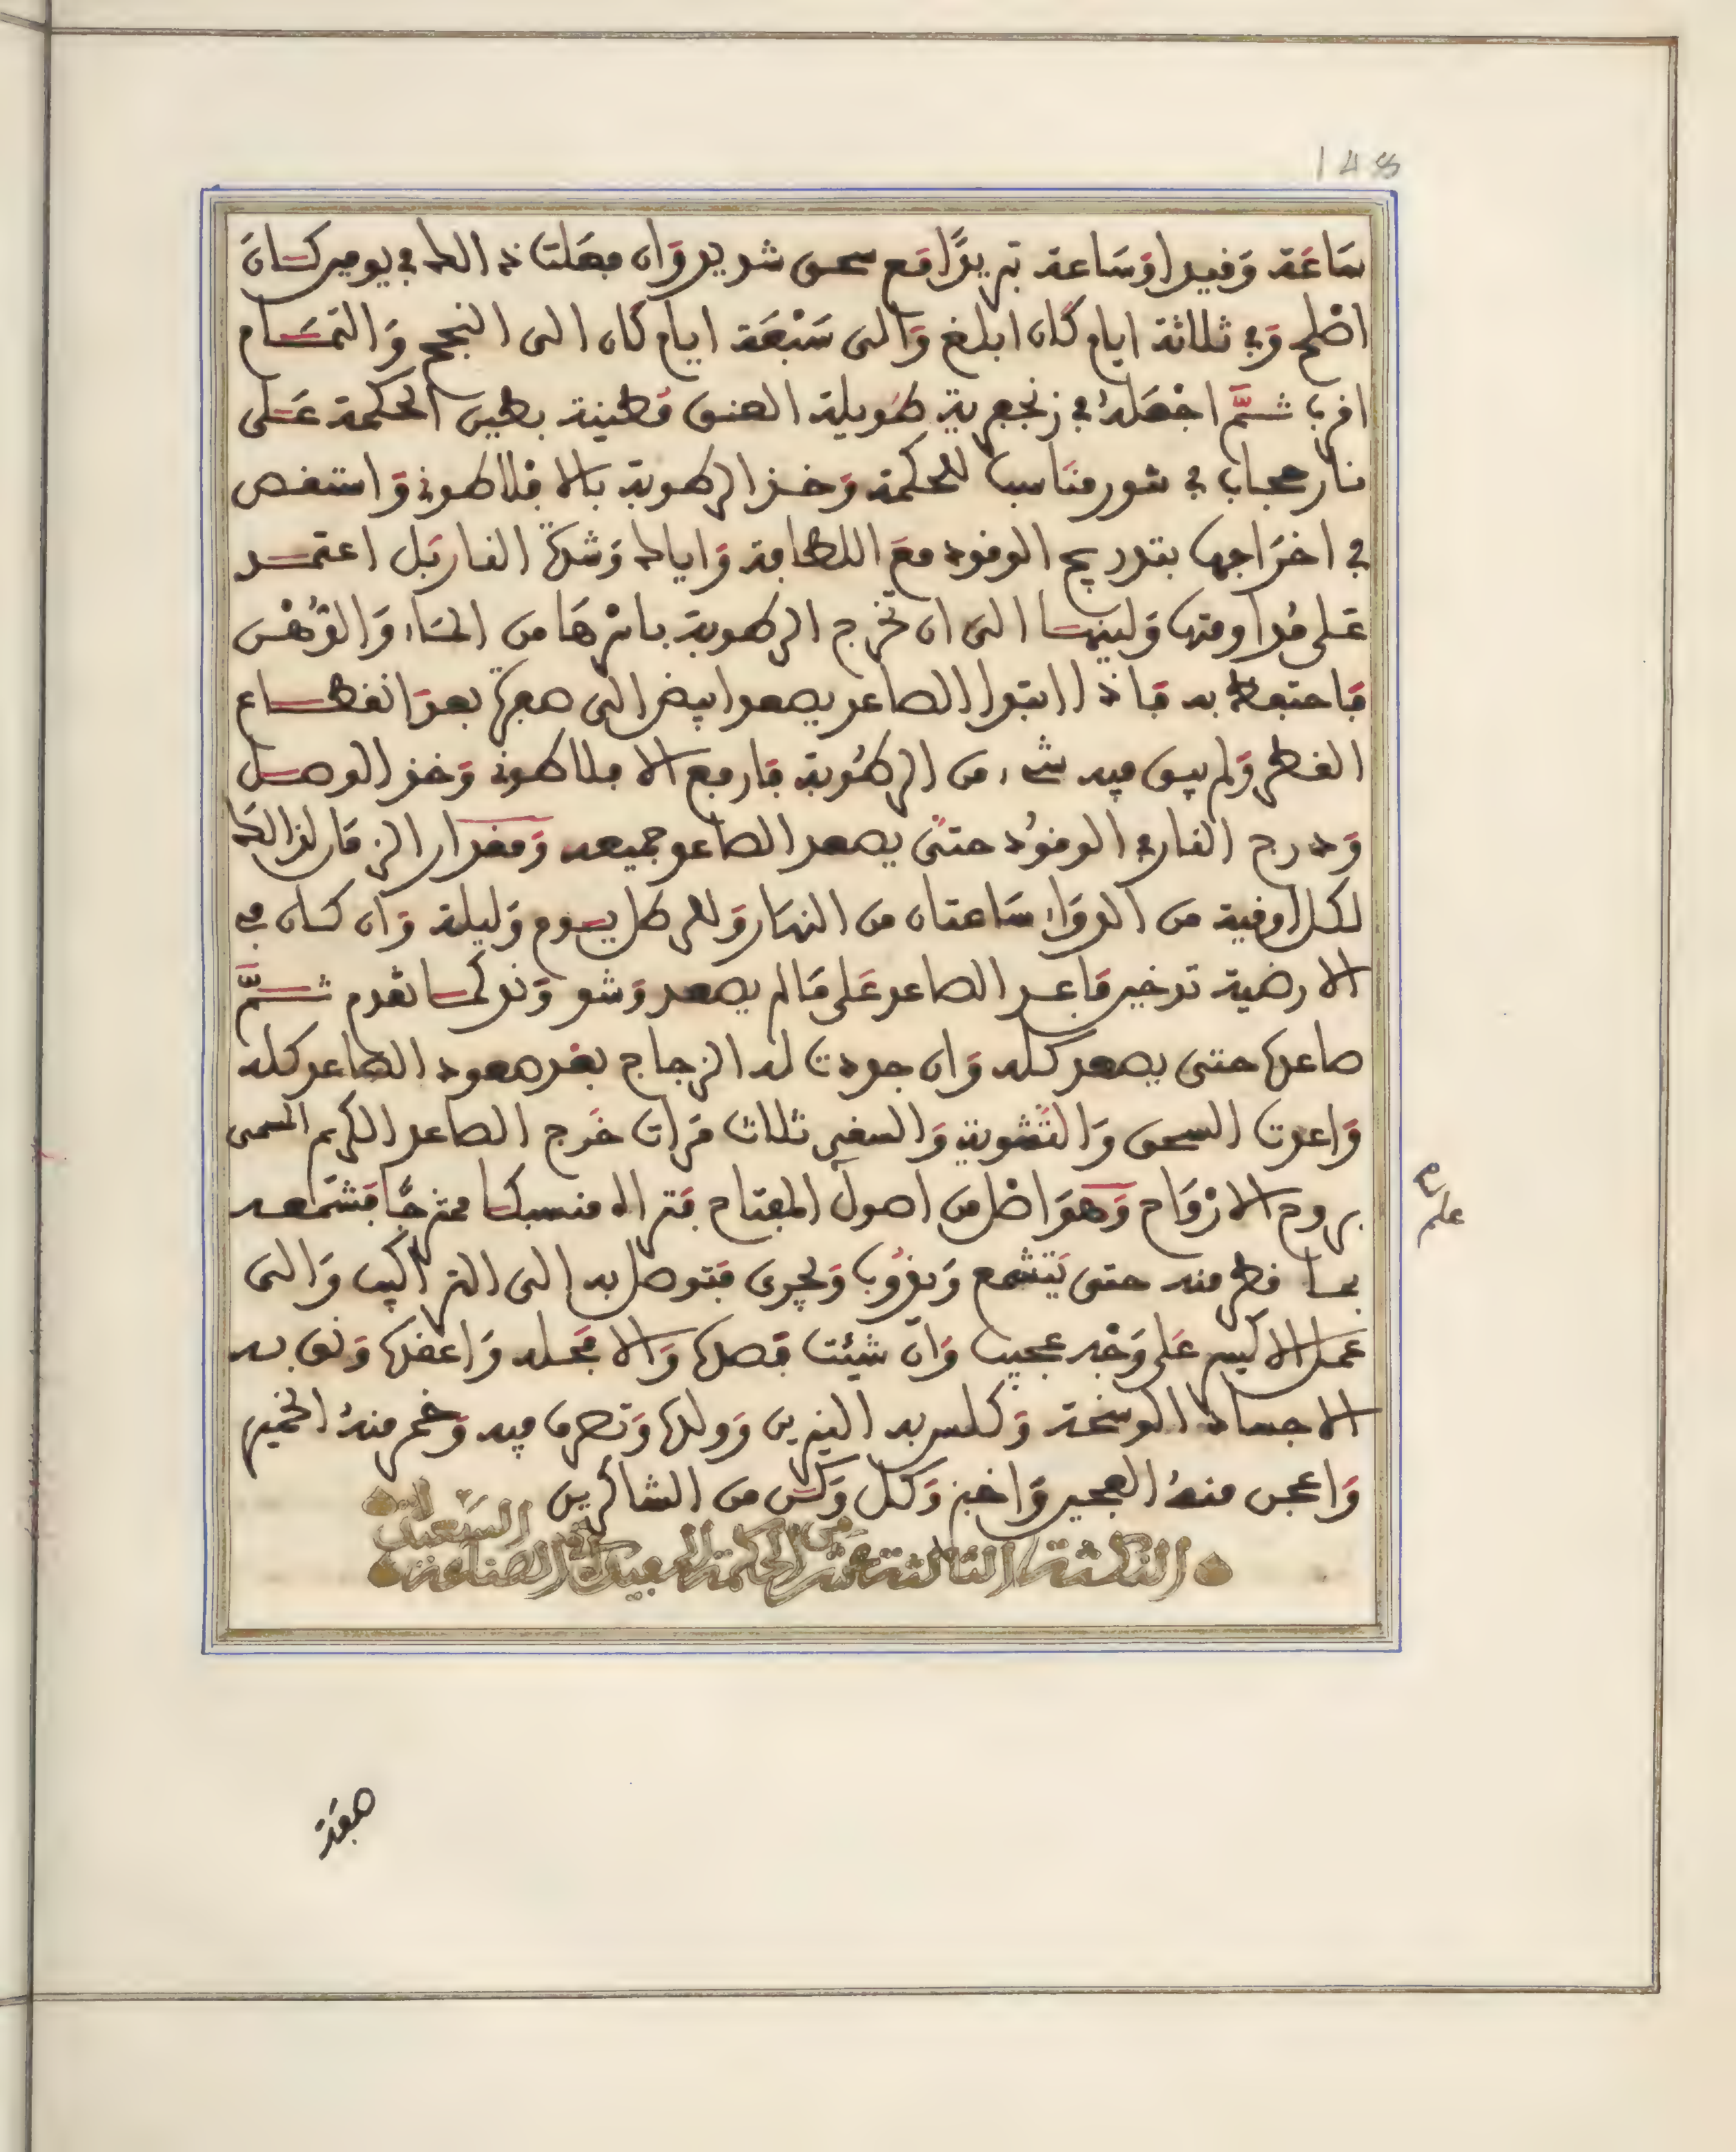 148
سَاعَة وَفيدا وَسَاعة تبريدًا مَع سحق شديد وَان فعَلت ذالك في يومين كَانَ
اصْلح وَفي ثلاثة ايام كَان ابلغ وَالى سَبْعَة ايام كَان الى النجح وَالتمَام
اقرب ثُمَّ اجْعَلهُ في زنجعرية طَويلة العنق مُطينة بطين الحكمة عَلى
نار حجاب في تنور مناسب للحكمة وَخذ الرطوبة بالافلاطوني وَاستقص
في اخرَاجها بتدريج الوقود معَ اللطافة وَاياك وَشدة النار بَل اعتمد
عَلى مُداومتها وَلينها الى ان تخرج الرطوبة باسْرهَا من الماء وَالدُّهْن
فاحتفظ به فَاذا ابتدا الصاعد يصعد ابيض الى صفرة بعد انقطاع
القطر وَلم يبق فيه شيء من الرطُوبة فَارفع الافلاطوني وَخذ الوصل
وَدرج النار في الوقوُد حتىَ يصعد الصاعد جميعه وَمقدار الزمَان لذالك
لكل اوقية من الدوَاء سَاعتان من النهَار وَللرطل يوم وَليلة وَان كَان في
الارضية تدخين فَاعد الصاعد عَلى مَا لم يصعد وَشو وَند كما تقدم ثُمَّ
صاعدها حتى يصعد كله وَان جددت له الزجاج بعد صعود الصاعد كله
وَاعدت السحق وَالتشوية وَالسقي ثلاث مَرات خَرج الصاعد الكريم المسمى
بروح الارْوَاح وَهوَ اصْل من اصول المفتاح فتراه منسبكا ممتزجًا فشمعه
بما قطر منه حتى يَتشمع وَيذُوب وَيجرى فَتوصل به الى التراكيب وَالى
عمل الاكسير عَلى وَجْه عجيب وَان شيئت فَصلها وَالا فَحله وَاعقدها وَنق به
الاجساد الوسخة وَكلس به النيرين وَولدها وَتصرف فيه وَخمر منهُ الخمير
وَاعجن منهُ العجين وَاخبز وَكل وَكن من الشاكرين
النكتة الثالثة عشر من الحكمة المفيدة في الصناعة السعيدة
صفة